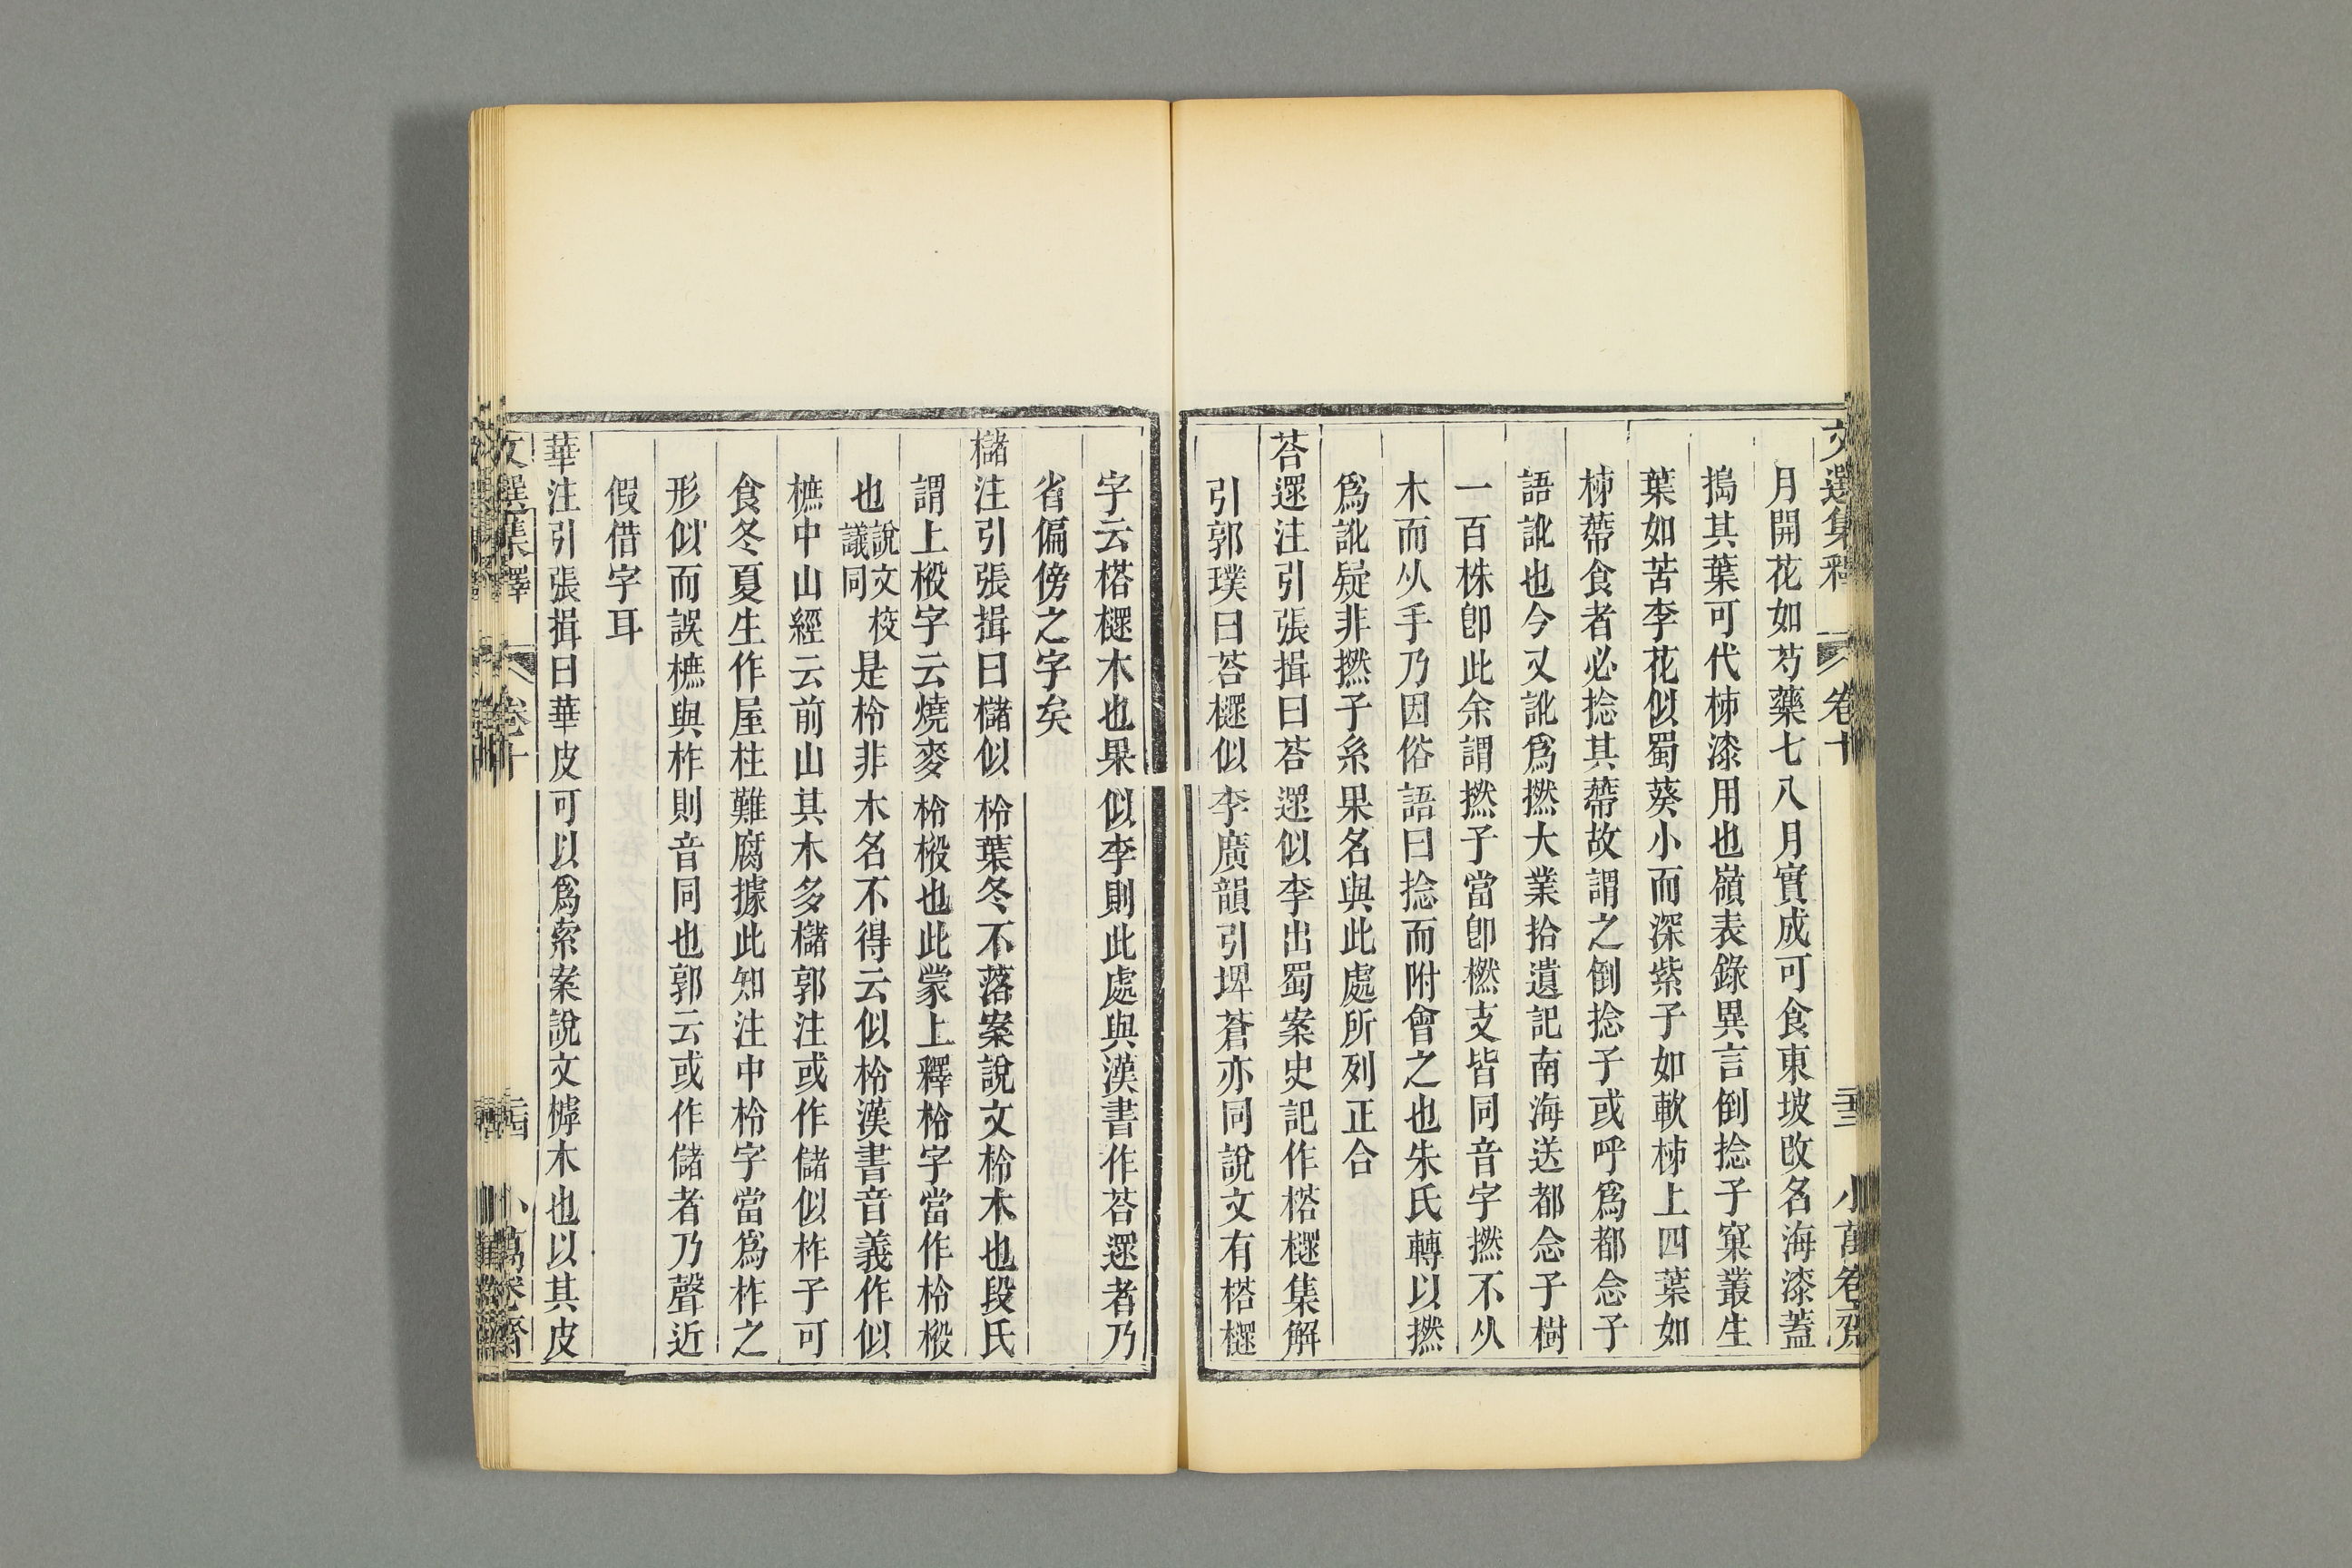 文選集釋 卷十 二十三 小萬卷齋
月開花如芍藥七八月實成可食東坡改名海漆蓋
搗其葉可代柹漆用也嶺表錄異言倒捻子窠叢生
葉如苦李花似蜀葵小而深紫子如軟柹上四葉如
柹蔕食者必捻其蔕故謂之倒捻子或呼爲都念子
語訛也今又訛爲撚大業拾遺記南海送都念子樹
一百株卽此余謂撚子當卽橪支皆同音字撚不从
木而从手乃因俗語曰捻而附會之也朱氏轉以撚
爲訛疑非撚子系果名與此處所列正合
荅遝注引張揖曰荅遝似李出蜀案史記作榙㯚集解
引郭璞曰荅㯚似李廣韻引埤蒼亦同說文有榙㯚
字云榙㯚木也果似李則此處與漢書作荅遝者乃
省偏傍之字矣
櫧注引張揖曰櫧似柃葉冬不落案說文柃木也段氏
謂上椴字云燒麥柃椴也此蒙上釋柃字當作柃椴
也說文校議同是柃非木名不得云似柃漢書音義作似
樜中山經云前山其木多櫧郭注或作儲似柞子可
食冬夏生作屋柱難腐據此知注中柃字當爲柞之
形似而誤樜與柞則音同也郭云或作儲者乃聲近
假借字耳
華注引張揖曰華皮可以爲索案說文樗木也以其皮
文選集釋 卷十 二十四 小萬卷齋